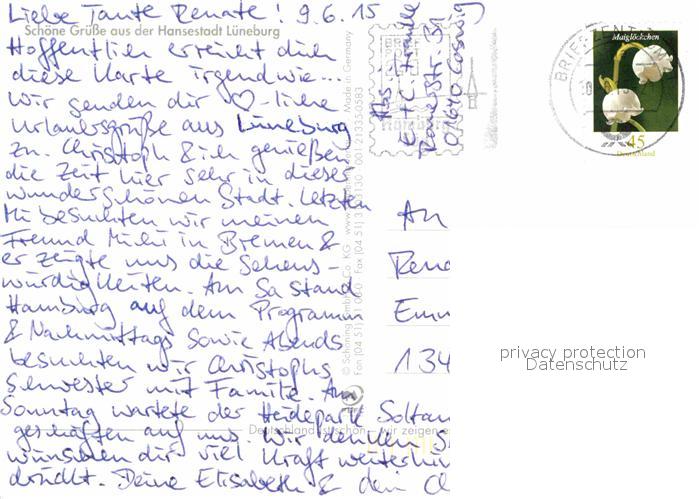 Liebe Tante Renate! 9.6.15
Schöne Grüße aus der Hansestadt Lüneburg
Hoffentlich erreicht dich
diese Karte irgendwie...
Wir senden dir ♡-liche
Urlaubsgrüße aus Lüneburg
zu. Christoph & ich genießen
die Zeit hier sehr in dieser
wunderschönen Stadt. Letzten
Mi besuchten wir meinen
Freund Michi in Bremen &
er zeigte uns die Sehens-
würdigkeiten. Am Sa stand
Hamburg auf dem Programm
& Nachmittags sowie Abends
besuchten wir Christophs
Schwester mit Familie. Am
Sonntag wartete der Heidepark Soltau
auf uns. Wir denken
wünschen dir viel Kraft weiterhin
drückt. Deine Elisabeth & dein
Abs
01640 Coswig
Made in Germany
Maiglöckchen
45
Deutschland
BRIEFZENTRUM
An
Rena
Emm
134
privacy protection
Datenschutz